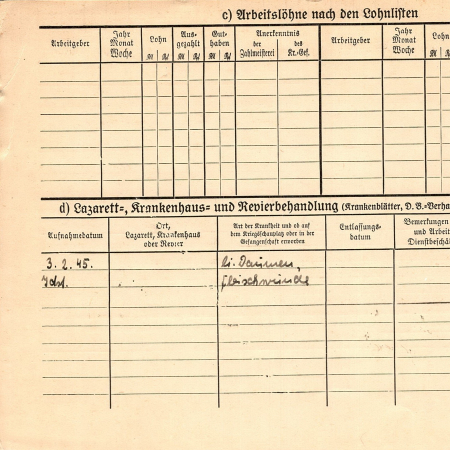 c) Arbeitslöhne nach den Lohnlisten
Arbeitgeber
Jahr
Monat
Woche
Lohn
ℛℳ
₰
Aus-
gezahlt
ℛℳ
₰
Gut-
haben
ℛℳ
₰
Anerkenntnis
der
Zahlmeisterei
des
Kr.-Gef.
Arbeitgeber
Jahr
Monat
Woche
Lohn
ℛℳ
d) Lazarett-, Krankenhaus- und Revierbehandlung (Krankenblätter, D. B.-Verha
Aufnahmedatum
Ort,
Lazarett, Krankenhaus
oder Revier
Art der Krankheit und ob auf
dem Kriegsschauplatz oder in der
Gefangenschaft erworben
Entlassungs-
datum
Bemerkungen
und Arbeit
Dienstbeschä
3. 2. 45.
li. Daumen,
Fleischwunde